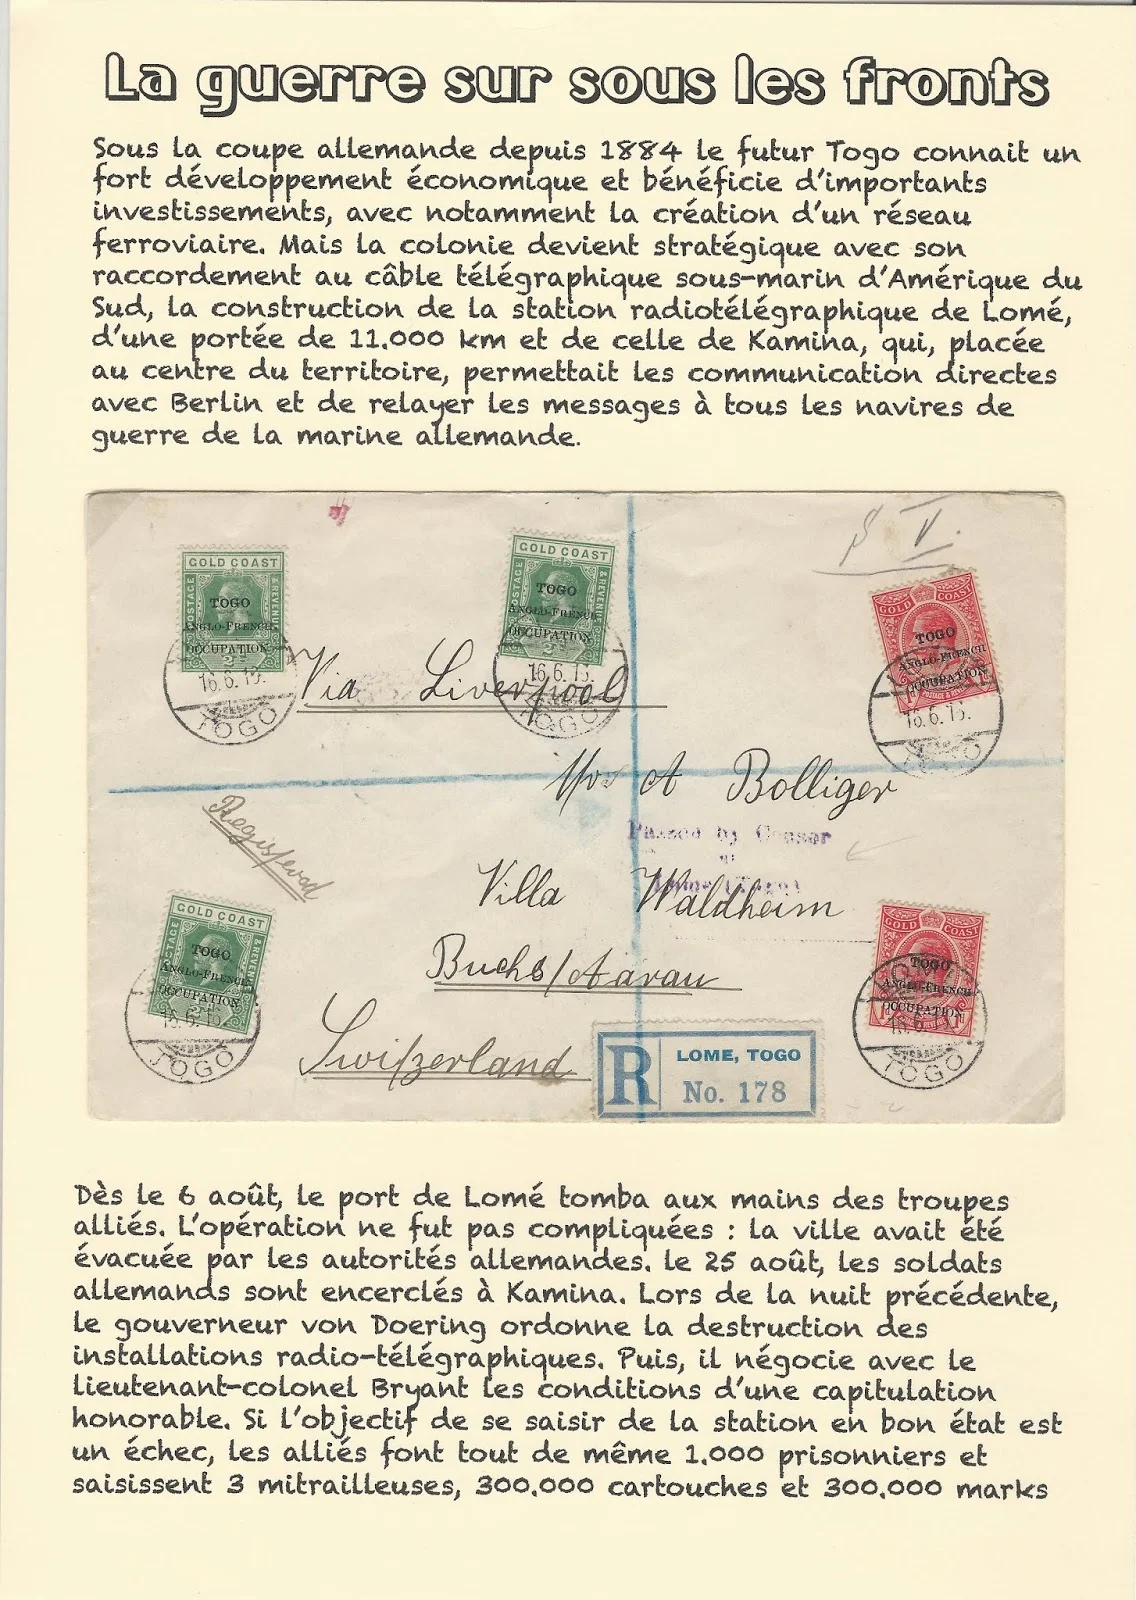 La guerre sur sous les fronts
Sous la coupe allemande depuis 1884 le futur Togo connait un
fort développement économique et bénéficie d'importants
investissements, avec notamment la création d'un réseau
ferroviaire. Mais la colonie devient stratégique avec son
raccordement au câble télégraphique sous-marin d'Amérique du
Sud, la construction de la station radiotélégraphique de Lomé,
d'une portée de 11.000 km et de celle de Kamina, qui, placée
au centre du territoire, permettait les communication directes
avec Berlin et de relayer les messages à tous les navires de
guerre de la marine allemande.
GOLD COAST
POSTAGE & REVENUE
TOGO
ANGLO-FRENCH
OCCUPATION
16.6.15.
TOGO
GOLD COAST
POSTAGE & REVENUE
TOGO
ANGLO-FRENCH
OCCUPATION
16.6.15.
TOGO
GOLD COAST
TOGO
ANGLO-FRENCH
OCCUPATION
POSTAGE & REVENUE
16.6.15.
TOGO
Via Liverpool
A Bolliger
Registered
Passed by Censor
Villa Waldheim
Buchs/Aarau
Switzerland
GOLD COAST
POSTAGE & REVENUE
TOGO
ANGLO-FRENCH
OCCUPATION
TOGO
GOLD COAST
TOGO
ANGLO-FRENCH
OCCUPATION
TOGO
R
LOME, TOGO
No. 178
Dès le 6 août, le port de Lomé tomba aux mains des troupes
alliés. L'opération ne fut pas compliquées : la ville avait été
évacuée par les autorités allemandes. le 25 août, les soldats
allemands sont encerclés à Kamina. Lors de la nuit précédente,
le gouverneur von Doering ordonne la destruction des
installations radio-télégraphiques. Puis, il négocie avec le
lieutenant-colonel Bryant les conditions d'une capitulation
honorable. Si l'objectif de se saisir de la station en bon état est
un échec, les alliés font tout de même 1.000 prisonniers et
saisissent 3 mitrailleuses, 300.000 cartouches et 300.000 marks